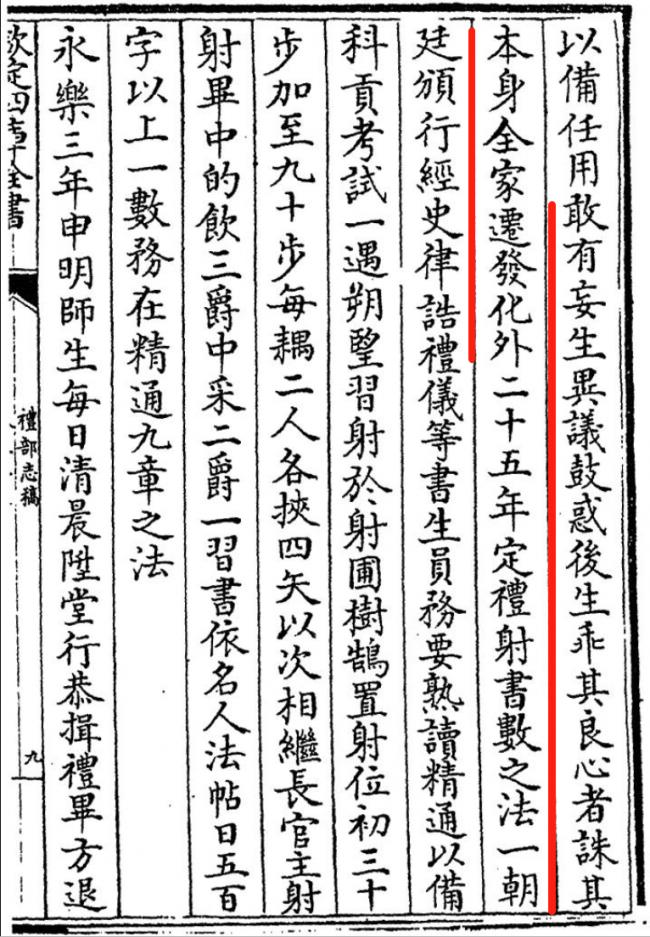 以備任用敢有妄生異議鼓惑後生乖其良心者誅其
本身全家遷發化外二十五年定禮射書數之法一朝
廷頒行經史律誥禮儀等書生員務要熟讀精通以備
科貢考試一遇朔望習射於射圃樹鵠置射位初三十
步加至九十步每耦二人各挾四矢以次相繼長官主射
射畢中的飲三爵中采二爵一習書依名人法帖日五百
字以上一數務在精通九章之法
永樂三年申明師生每日清晨陞堂行恭揖禮畢方退
欽定四庫全書
禮部志稿
九